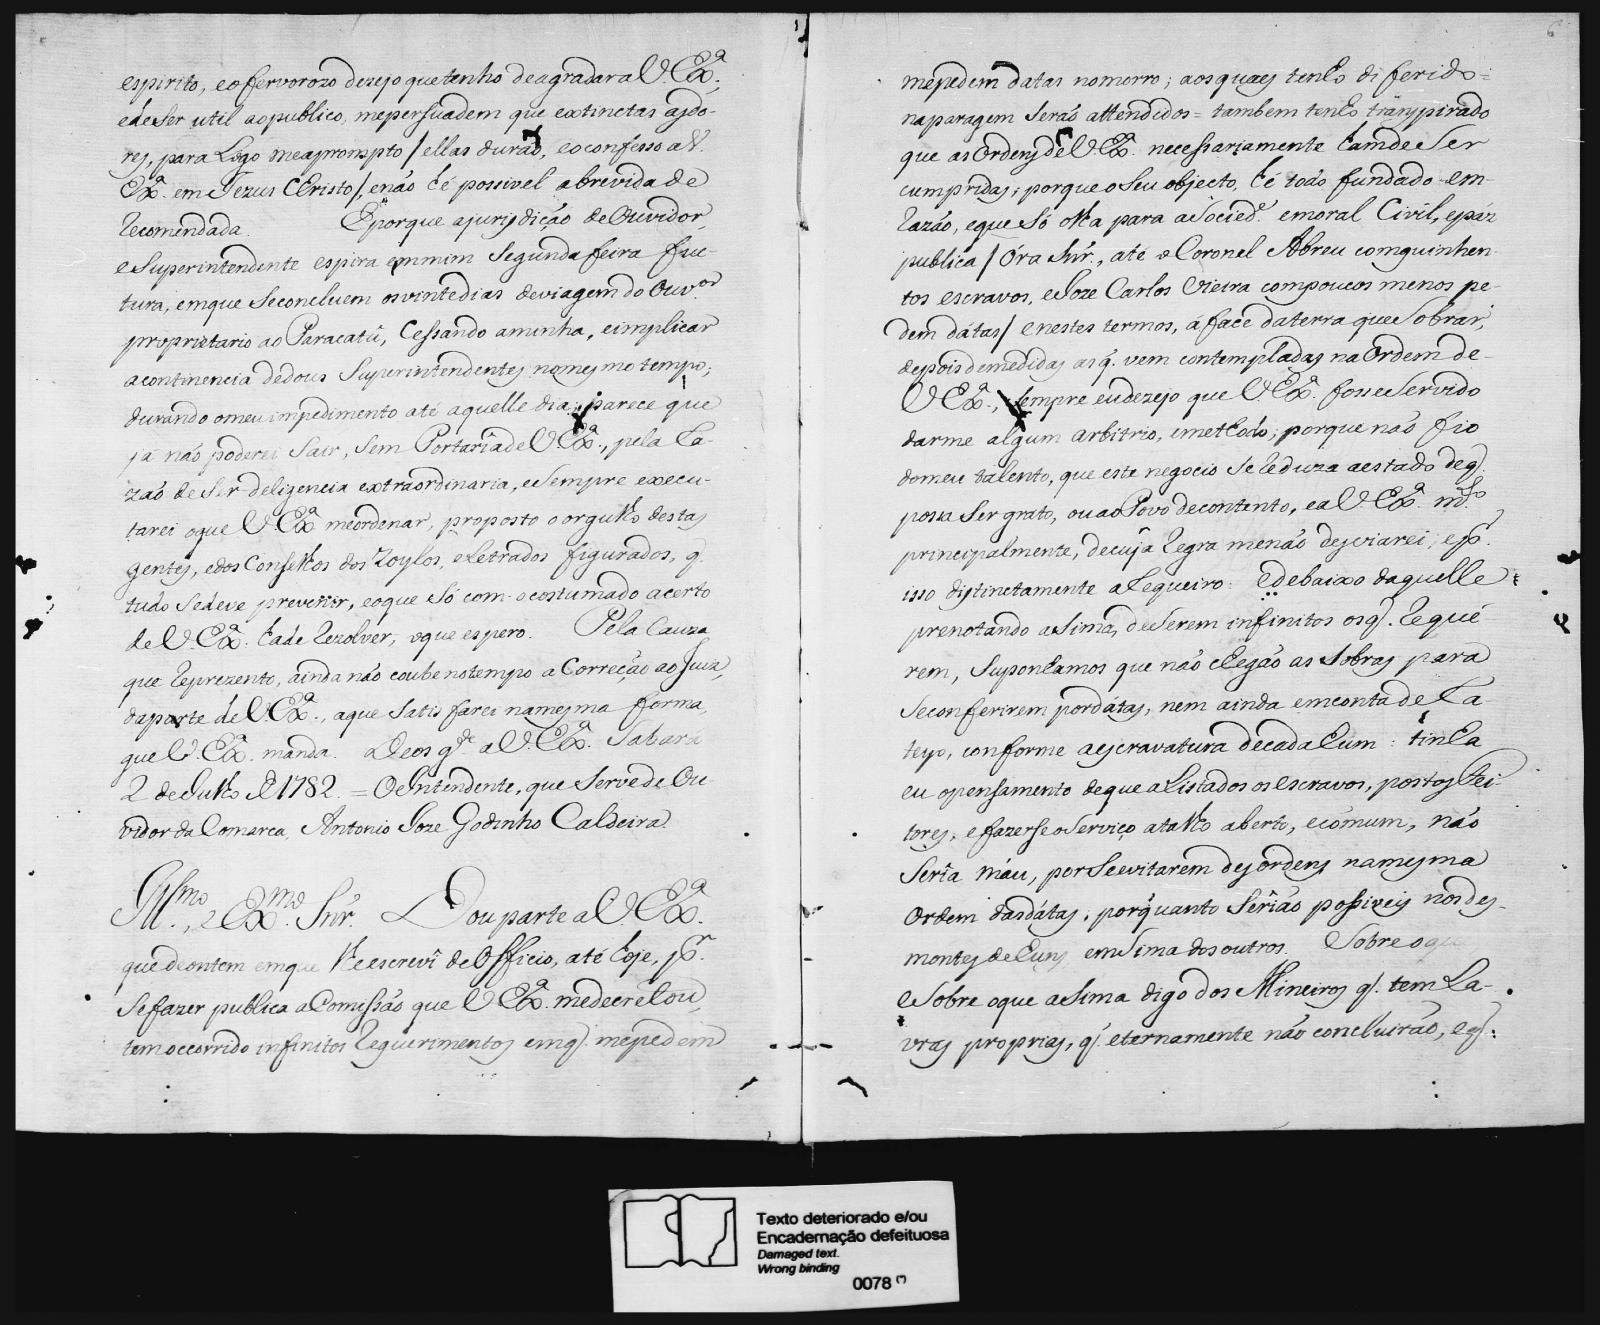 espirito, eo fervorozo dezejo que tenho de agradar a V. Exª.,
e de Ser util ao publico, me persuadem que extinctas as do-
res, para Logo me aprompto / ellas durão, eo confesso a V.
Exª. em Jezus Christo /, e não hé possivel a brevidade
recomendada. E porque a jurisdição de Ouvidor,
e Superintendente espira em mim Segunda feira fuc-
tura, em que Se concluem os vinte dias de viagem do Ouvor.
proprietario ao Paracatû, Cessando a minha, e implicar
a continencia de dous Superintendentes no mesmo tempo;
durando o meu impedimento até aquelle dia; parece que
já não poderei Sair, Sem Portaria de V. Exª., pela ra-
zão de Ser deligencia extraordinaria, e Sempre execu-
tarei o que V. Exª. me ordenar, proposto o orgulho destas
gentes, e dos Conselhos dos Zoylos, e Letrados figurados, q.
tudo Se deve prevenir, eo que Só com o costumado acerto
de V. Exª. ha de rezolver, o que espero. Pela Cauza
que reprezento, ainda não coube no tempo a Correção ao Juiz,
da parte de V. Exª., a que Satisfarei na mesma forma,
que V. Exª. manda. Deos gde. a V. Exª. Sabará
2 de Julho de 1782 = O Intendente, que Serve de Ou-
vidor da Comarca, Antonio Joze Godinho Caldeira.
Illmo., e Exmo. Snr. Dou parte a V. Exª.
que de ontem em que lhe escrevi de Officio, até hoje, pr.
Se fazer publica a Comissão que V. Exª. me decretou,
tem occorrido infinitos requerimentos em q. me pedem
me pedem datas no morro; aos quaes tenho diferido =
na paragem Serão attendidos = tambem tenho transpirado
que as Ordens de V. Exª. necessariamente ham de Ser
cumpridas; porque o Seu objecto, hé todo fundado em
razão, e que Só olha para a Socied. e moral Civil, e páz
publica / Óra Snr., até o Coronel Abreu com quinhen-
tos escravos, e Joze Carlos Vieira com poucos menos pe-
dem dátas / e nestes termos, á face da terra que Sobrar,
depois de medidas as q. vem contempladas na Ordem de
V. Exª., Sempre eu dezejo que V. Exª. fosse Servido
darme algum arbitrio, e methodo; porque não fio
do meu talento, que este negocio Se reduza a estado de q.
possa Ser grato, ou ao Povo de contento, e a V. Exª. mto.
principalmente, de cuja regra me não desviarei; e pr.
isso distinctamente a requeiro. E debaixo daquelle
prenotando aSima, de Serem infinitos os q. reque-
rem, Suponhamos que não chegão as Sobras para
Se conferirem por dátas, nem ainda em conta de ra-
teyo, conforme a escravatura de cada hum: tinha
eu o pensamento de que aListados os escravos, postos Fei-
tores, e fazerse o Serviço a talho aberto, e cõmum, não
Seria máu, por Se evitarem desordens na mesma
Ordem das dátas; porquanto Serião possiveis nos des-
montes de huns em Sima dos outros. Sobre o que
e Sobre o que aSima digo dos Mineiros q. tem La-
vras proprias, q. eternamente não concluirão, e q.
Texto deteriorado e/ou
Encadernação defeituosa
Damaged text.
Wrong binding
0078 (*)